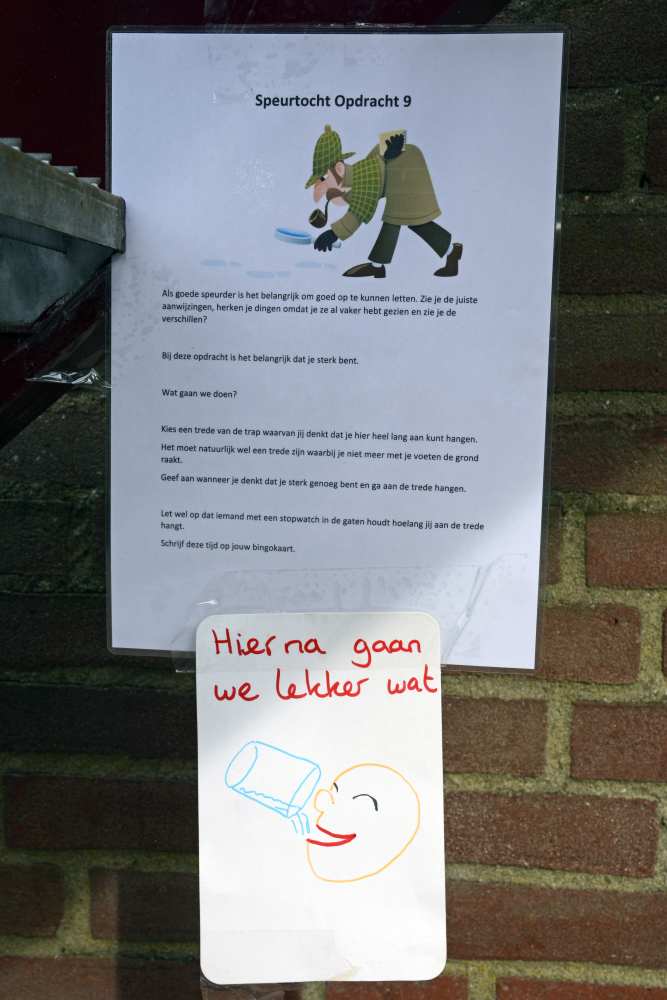 Speurtocht Opdracht 9
Als goede speurder is het belangrijk om goed op te kunnen letten. Zie je de juiste
aanwijzingen, herken je dingen omdat je ze al vaker hebt gezien en zie je de
verschillen?
Bij deze opdracht is het belangrijk dat je sterk bent.
Wat gaan we doen?
Kies een trede van de trap waarvan jij denkt dat je hier heel lang aan kunt hangen.
Het moet natuurlijk wel een trede zijn waarbij je niet meer met je voeten de grond
raakt.
Geef aan wanneer je denkt dat je sterk genoeg bent en ga aan de trede hangen.
Let wel op dat iemand met een stopwatch in de gaten houdt hoelang jij aan de trede
hangt.
Schrijf deze tijd op jouw bingokaart.
Hierna gaan
we lekker wat